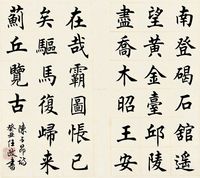 南登碣石舘遥
望黃金臺邱陵
盡喬木昭王安
在哉霸圖悵已
矣驅馬復歸来
薊丘覽古
陳子昂詩
任政書